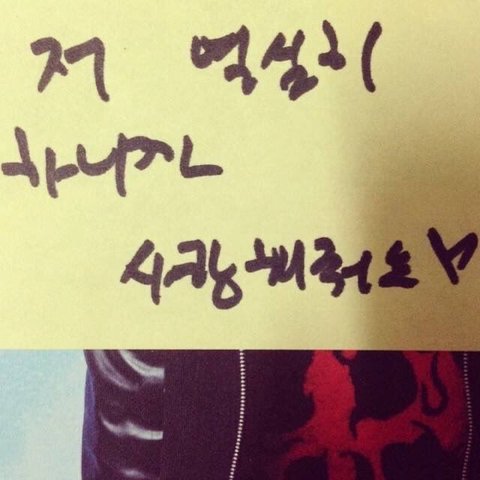 저 열실히
하니까
사랑해줘요